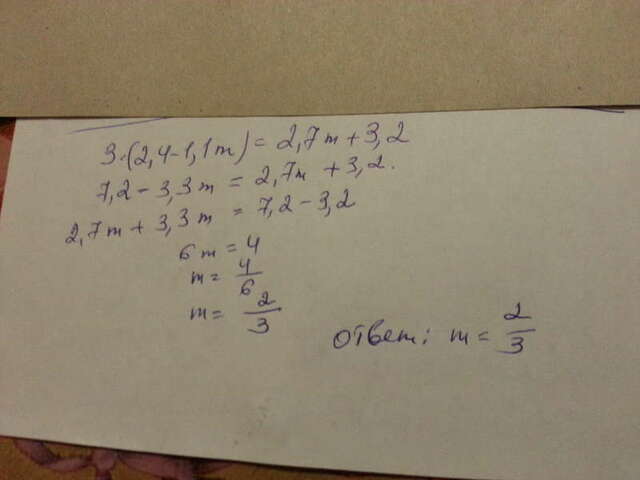 3·(2,4-1,1m) = 2,7m+3,2
7,2-3,3m = 2,7m +3,2.
2,7m+3,3m = 7,2-3,2
6m = 4
m = 4/6
m = 2/3
Ответ: m = 2/3